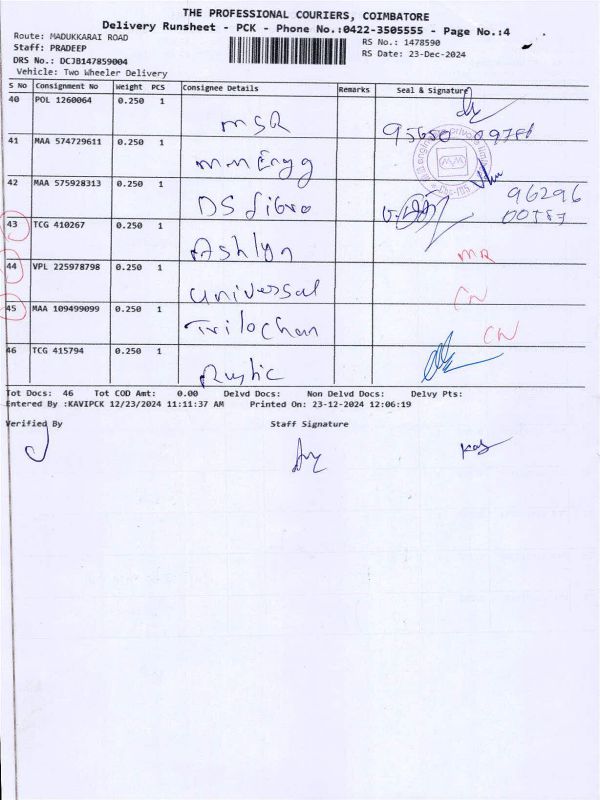 THE PROFESSIONAL COURIERS, COIMBATORE
Delivery Runsheet - PCK - Phone No.:0422-3505555 - Page No.:4
Route: MADUKKARAI ROAD
RS No.: 1478590
Staff: PRADEEP
RS Date: 23-Dec-2024
DRS No.: DCJB147859004
Vehicle: Two Wheeler Delivery
S No Consignment No Weight PCS Consignee Details Remarks Seal & Signature
40 POL 1260064 0.250 1
MSR
41 MAA 574729611 0.250 1
MM Engg
42 MAA 575928313 0.250 1
DS Fibro 96296
43 TCG 410267 0.250 1
Ashlyn MR
44 VPL 225978798 0.250 1
Universal CN
45 MAA 109499099 0.250 1
Trilochan CN
46 TCG 415794 0.250 1
Rustic
Tot Docs: 46 Tot COD Amt: 0.00 Delvd Docs: Non Delvd Docs: Delvy Pts:
Entered By :KAVIPCK 12/23/2024 11:11:37 AM Printed On: 23-12-2024 12:06:19
Verified By Staff Signature